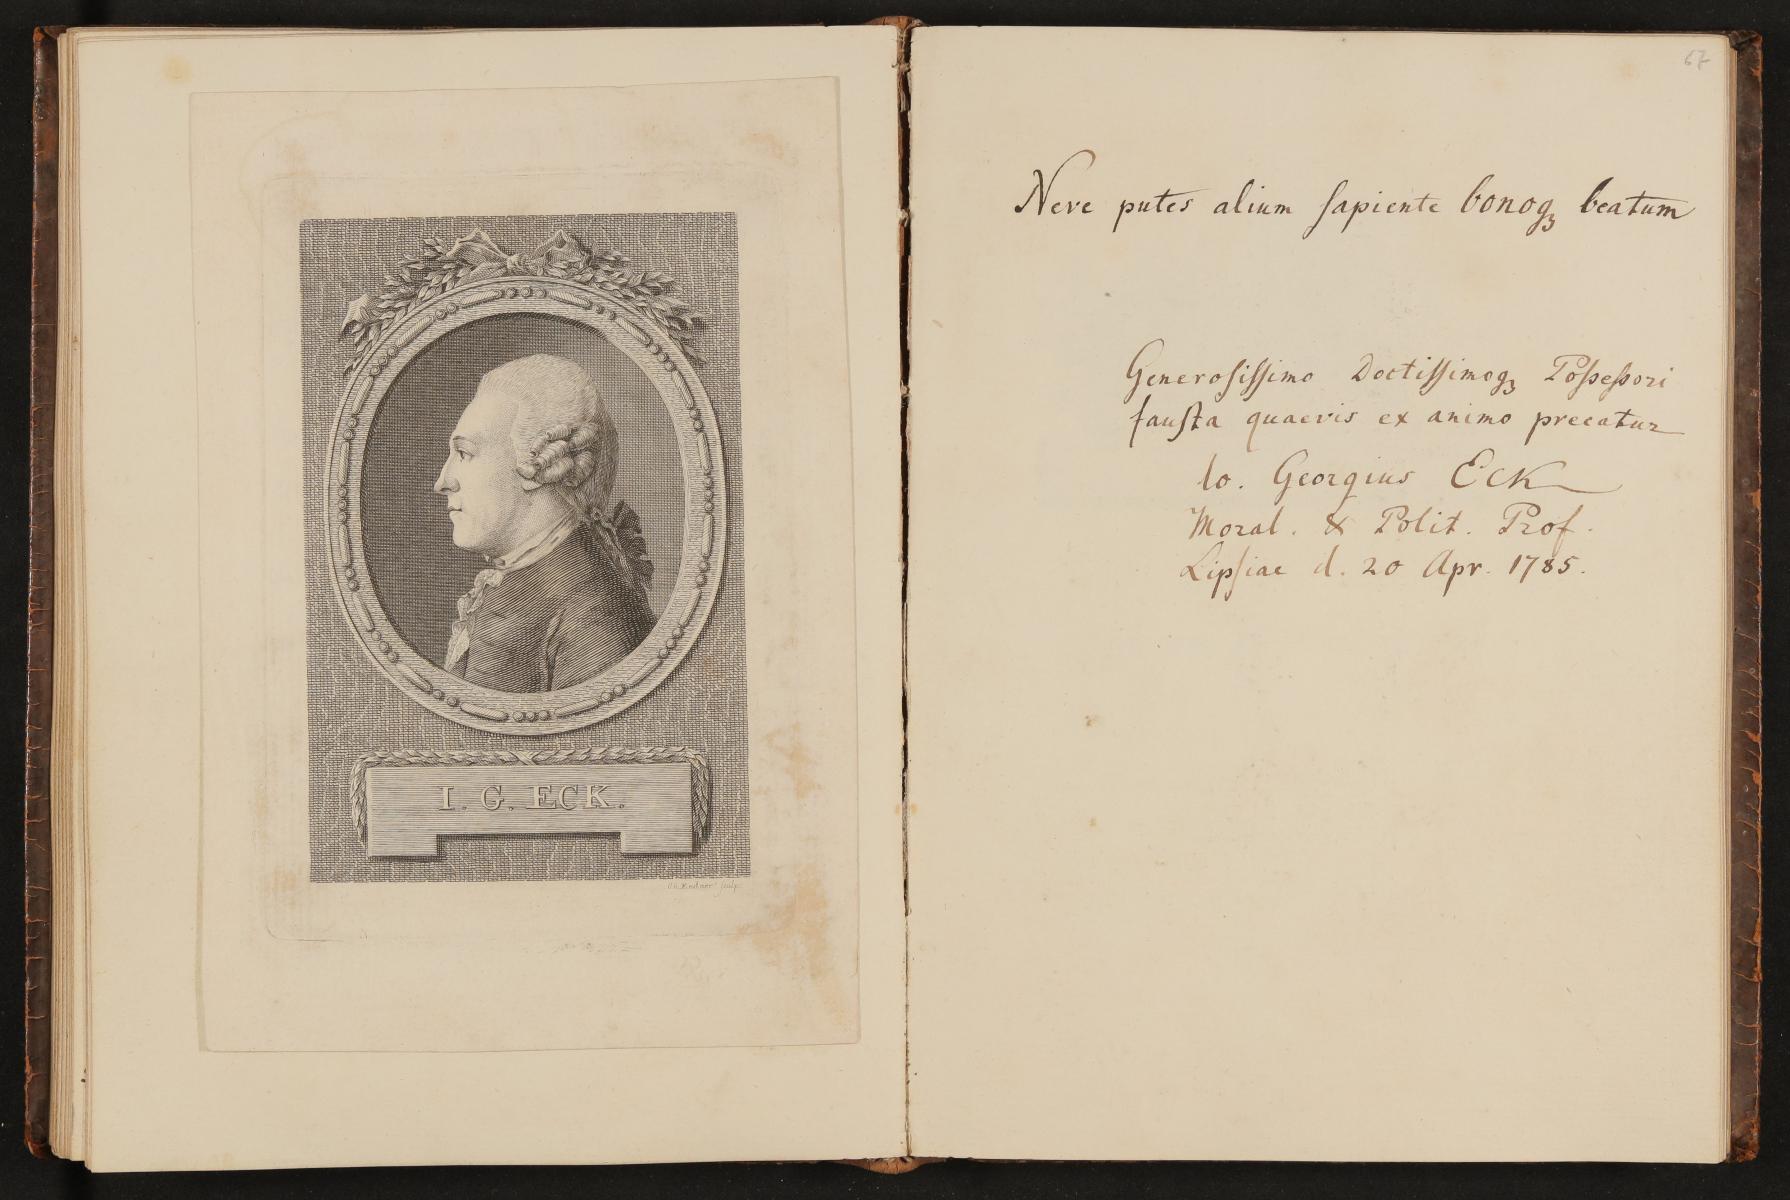 I. G. ECK.
Endner sculp.
67
Neve putes alium sapiente bonoqꝫ beatum
Generosissimo Doctissimoqꝫ Possessori
fausta quaevis ex animo precatur
Io. Georgius Eck
Moral. & Polit. Prof.
Lipsiae d. 20 Apr. 1785.